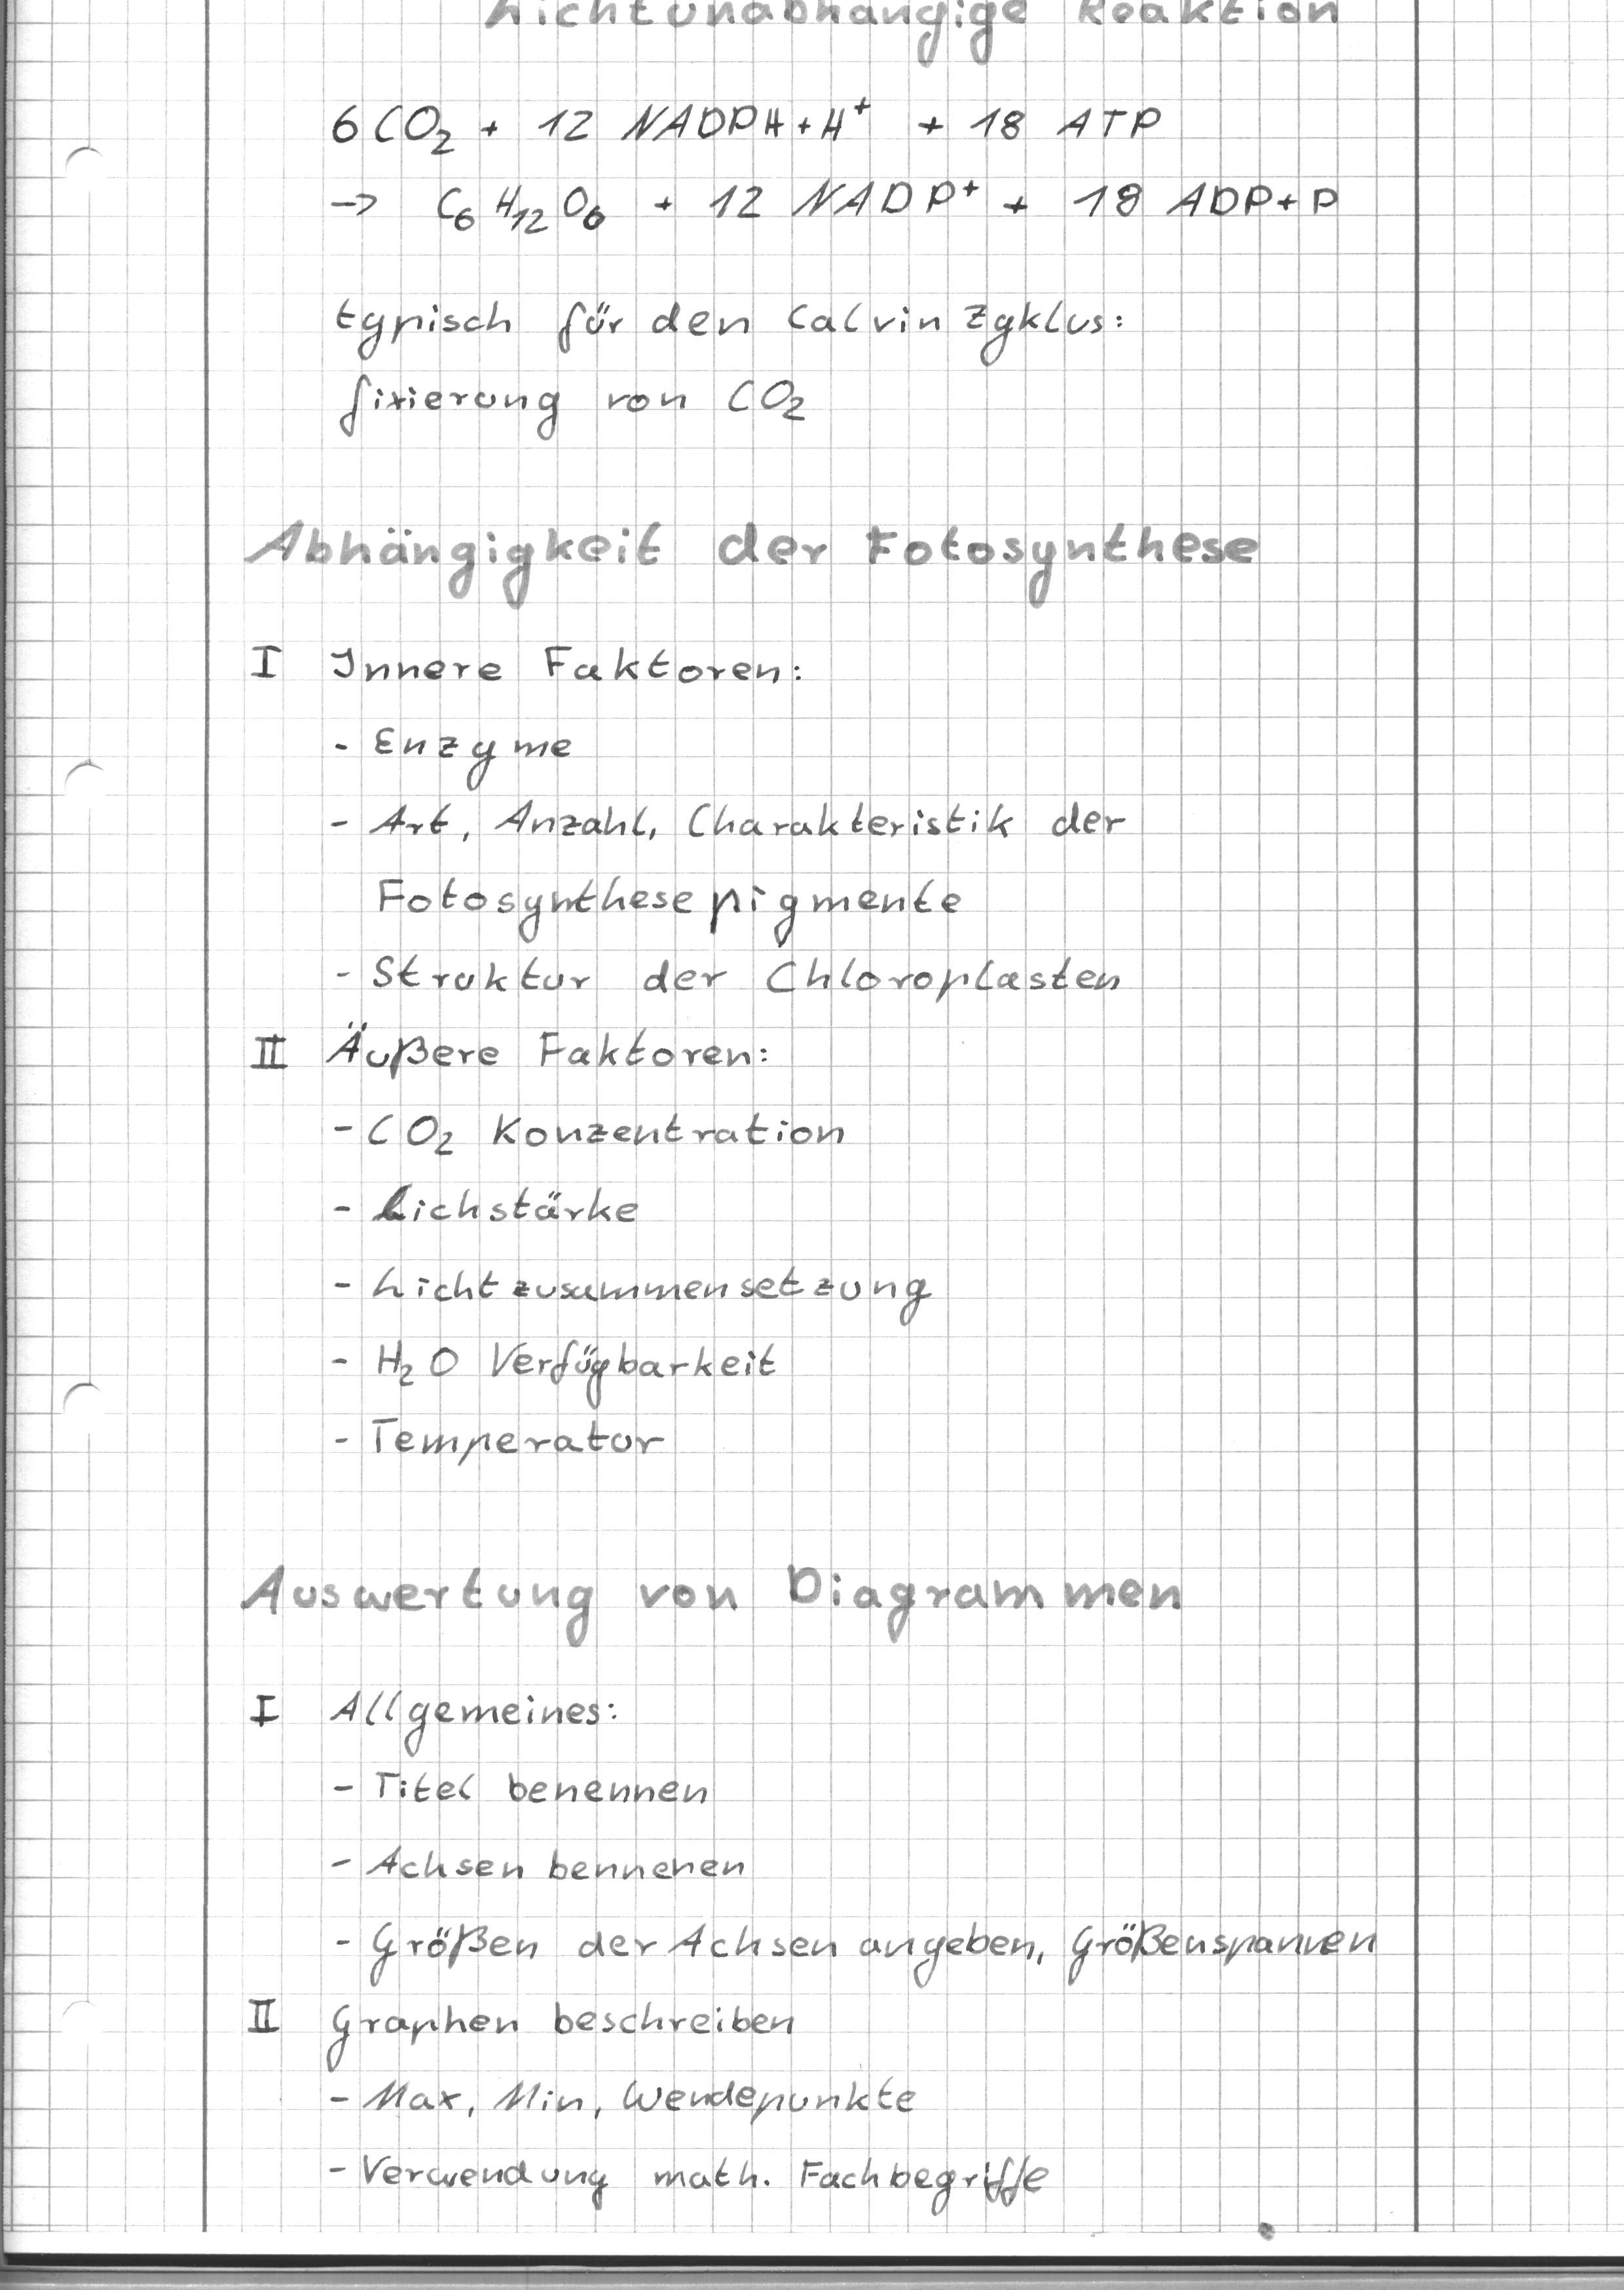 Lichtunabhängige Reaktion
6 CO₂ + 12 NADPH + H⁺ + 18 ATP
→ C₆H₁₂O₆ + 12 NADP⁺ + 18 ADP + P
typisch für den Calvin Zyklus:
fixierung von CO₂
Abhängigkeit der Fotosynthese
I Innere Faktoren:
- Enzyme
- Art, Anzahl, Charakteristik der
Fotosynthesepigmente
- Struktur der Chloroplasten
II Äußere Faktoren:
- CO₂ Konzentration
- Lichstärke
- Lichtzusammensetzung
- H₂O Verfügbarkeit
- Temperatur
Auswertung von Diagrammen
I Allgemeines:
- Titel benennen
- Achsen bennenen
- Größen der Achsen angeben, Größenspannen
II Graphen beschreiben
- Max, Min, Wendepunkte
- Verwendung math. Fachbegriffe